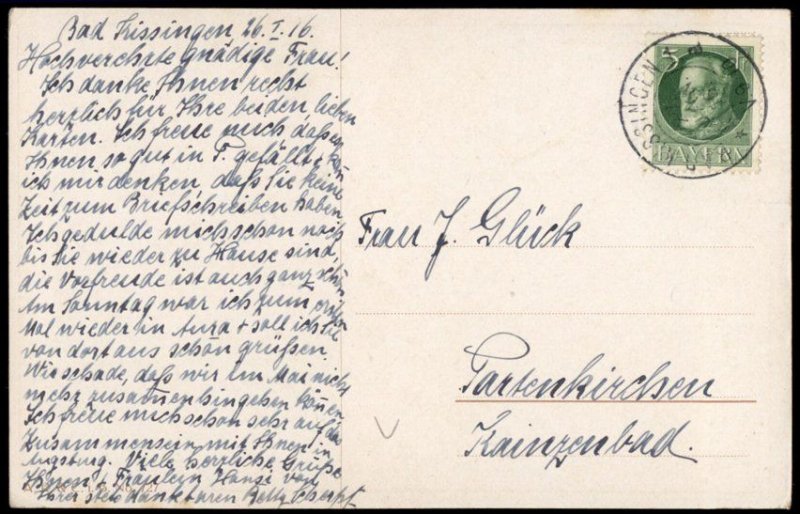 Bad Kissingen, 26.I.16.
Hochverehrte gnädige Frau!
Ich danke Ihnen recht
herzlich für Ihre beiden lieben
Karten. Ich freue mich, daß es
Ihnen so gut in P. gefällt +
ich mir denken, daß Sie keine
Zeit zum Briefschreiben haben.
Ich gedulde mich schon noch
bis Sie wieder zu Hause sind,
die Vorfreude ist auch ganz schön
Am Sonntag war ich zum ersten
Mal wieder in Aura + soll ich Sie
von dort aus schön grüßen.
Wie schade, daß wir im Mai nicht
mehr zusammen hingehen können
Ich freue mich schon sehr auf das
Zusammensein mit Ihnen in
Augsburg. Viele herzliche Grüße
Ihnen + Fräulein Hansi von
Ihrer stets dankbaren Betty
5
BAYERN
BAD KISSINGEN
Frau J. Glück
Partenkirchen
Kainzenbad.